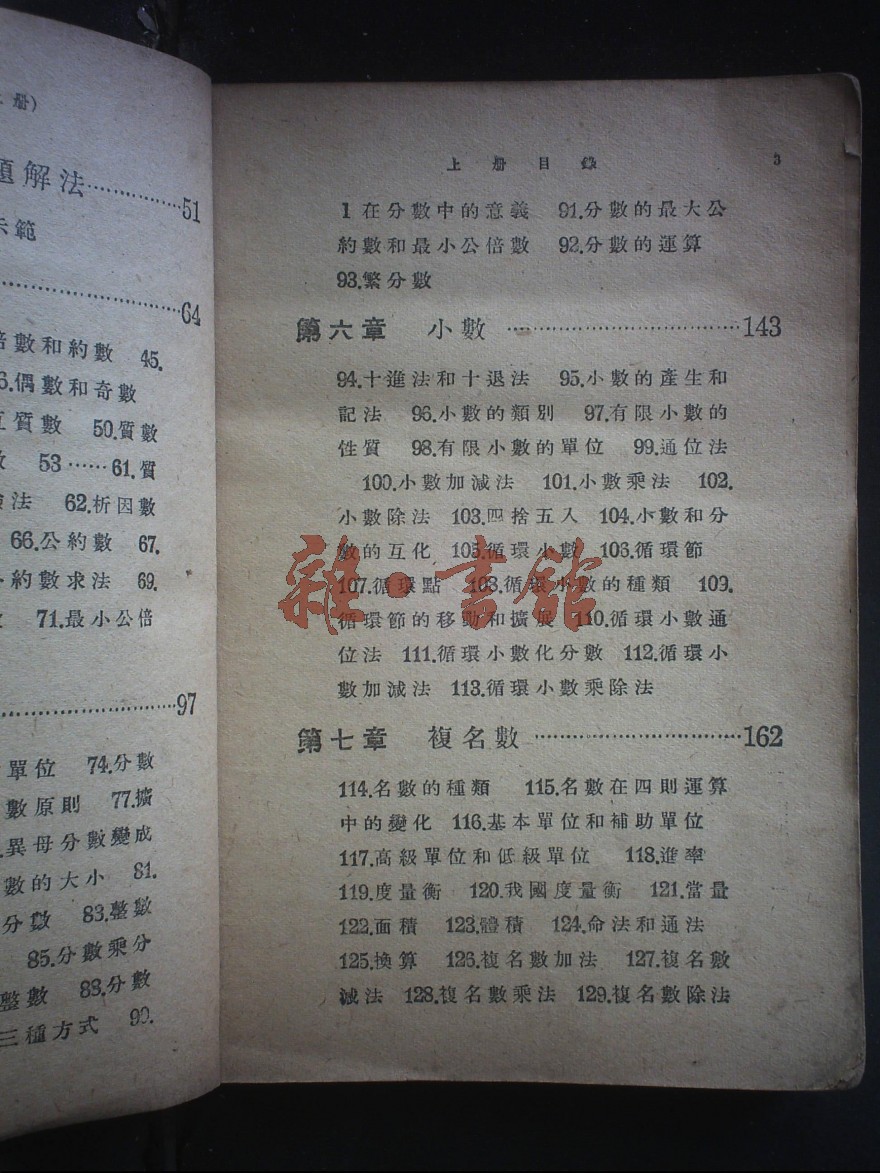 上 册)
題解法…………51
示範
…………64
倍數和約數 45.
6.偶數和奇數
互質數 50.質數
數 53……61.質
法 62.析因數
66.公約數 67.
公約數求法 69.
71.最小公倍
…………97
單位 74.分數
數原則 77.擴
異母分數變成
數的大小 81.
分數 83.整數
85.分數乘分
整數 88.分數
三種方式 90.
上册目錄 3
1在分數中的意義 91.分數的最大公
約數和最小公倍數 92.分數的運算
93.繁分數
第六章 小數…………143
94.十進法和十退法 95.小數的產生和
記法 96.小數的類別 97.有限小數的
性質 98.有限小數的單位 99.通位法
100.小數加減法 101.小數乘法 102.
小數除法 103.四捨五入 104.小數和分
數的互化 105.循環小數 106.循環節
107.循環點 108.循環小數的種類 109.
循環節的移動和擴展 110.循環小數通
位法 111.循環小數化分數 112.循環小
數加減法 113.循環小數乘除法
第七章 複名數…………162
114.名數的種類 115.名數在四則運算
中的變化 116.基本單位和補助單位
117.高級單位和低級單位 118.進率
119.度量衡 120.我國度量衡 121.當量
122.面積 123.體積 124.命法和通法
125.換算 126.複名數加法 127.複名數
減法 128.複名數乘法 129.複名數除法
雜·書館